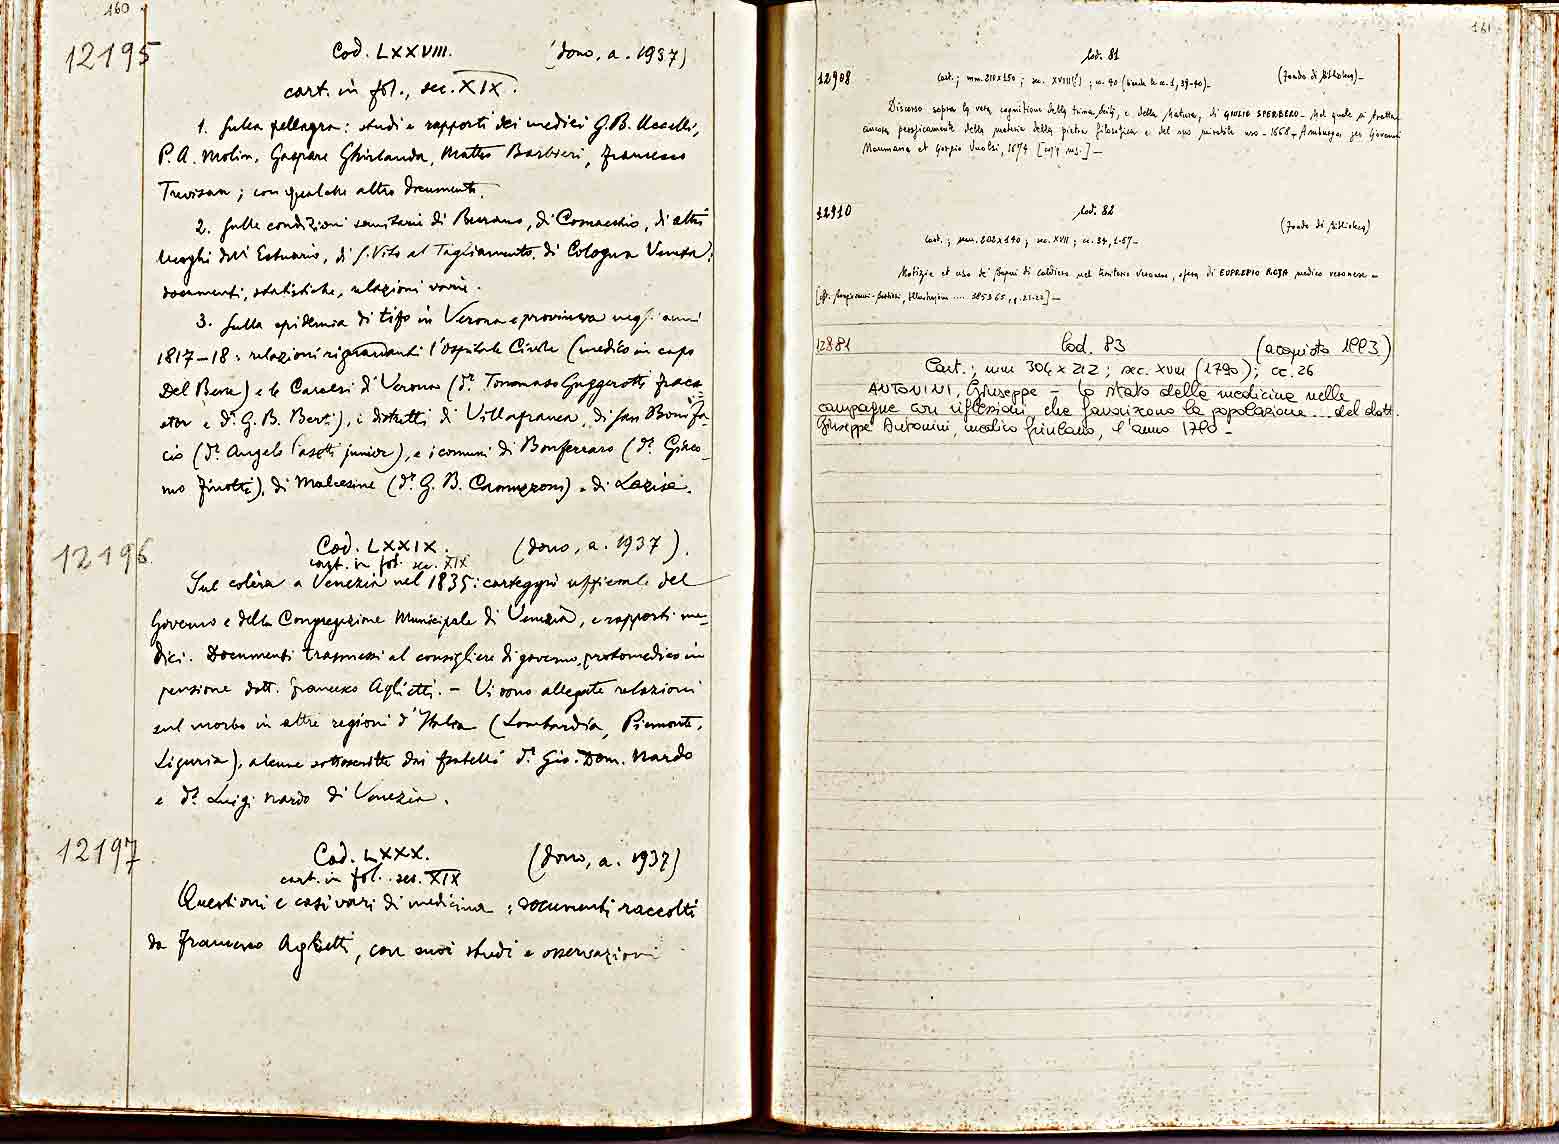 160
12195 Cod. LXXVIII. (dono, a. 1937)
cart. in fol., sec. XIX.
1. Sulla pellagra: studi e rapporti dei medici G.B. Uccelli,
P. A. Molin, Gaspare Ghirlanda, Matteo Barbieri, Francesco
Trevisan; con qualche altro documento.
2. Sulle condizioni sanitarie di Burano, di Comacchio, di altri
luoghi dell'Estuario, di S. Vito al Tagliamento, di Cologna Veneta:
documenti, statistiche, relazioni varie.
3. Sulla epidemia di tifo in Verona e provincia negli anni
1817-18: relazioni riguardanti l'Ospitale Civile (medico in capo
Del Bene) e le Carceri di Verona (dr. Tommaso Guggerotti
e dr. G. B. Berti), i distretti di Villafranca, di San Bonifa-
cio (dr. Angelo Pasetti junior), e i comuni di Bonferraro (dr. Giaco-
mo Finotti), di Malcesine (dr. G. B.) e di Lazise.
12196 Cod. LXXIX. (dono, a. 1937).
cart. in fol. sec. XIX
Sul colèra a Venezia nel 1835: carteggi ufficiali del
Governo e della Congregazione Municipale di Venezia, e rapporti me-
dici. Documenti trasmessi al consigliere di governo, protomedico in
pensione dott. Francesco Aglietti. - Vi sono allegate relazioni
sul morbo in altre regioni d'Italia (Lombardia, Piemonte,
Liguria), alcune sottoscritte dai fratelli dr. Gio. Dom. Nardo
e dr. Luigi Nardo di Venezia.
12197 Cod. LXXX. (dono, a. 1937)
cart. in fol. sec. XIX
Questioni e casi vari di medicina: documenti raccolti
da Francesco Aglietti, con suoi studi e osservazioni
161
Cod. 81
12908 Cart.; mm. 210x150; sec. XVIII(?); cc. 40 (bianche le cc. 1, 39-40)- (Fondo di biblioteca)-
Discorso sopra la vera cognitione della e della Natura, di GIULIO SPERBERO- Nel quale si tratta
ancora perspicamente della materia della pietra filosofica e del suo mirabile uso - 1668- Hamburgo per Giovanni
Naumann et Giorgio 1674 [copia ms.]-
12910 Cod. 82
(Fondo di biblioteca)
Cart.; mm. 202x140; sec. XVII; cc. 34, 1-57-
Notizia et uso de' Bagni di Caldiero nel territorio Veronese, opera di EUPREPIO RIGIA medico veronese -
12881 Cod. 83 (acquisto 1993)
Cart.; mm 304 x 212; sec. XVIII (1790); cc. 26
ANTONINI, Giuseppe - Lo stato della medicina nelle
campagne con riflessioni che favoriscono la popolazione... del dott.
Giuseppe Antonini, medico friulano, l'anno 1790-